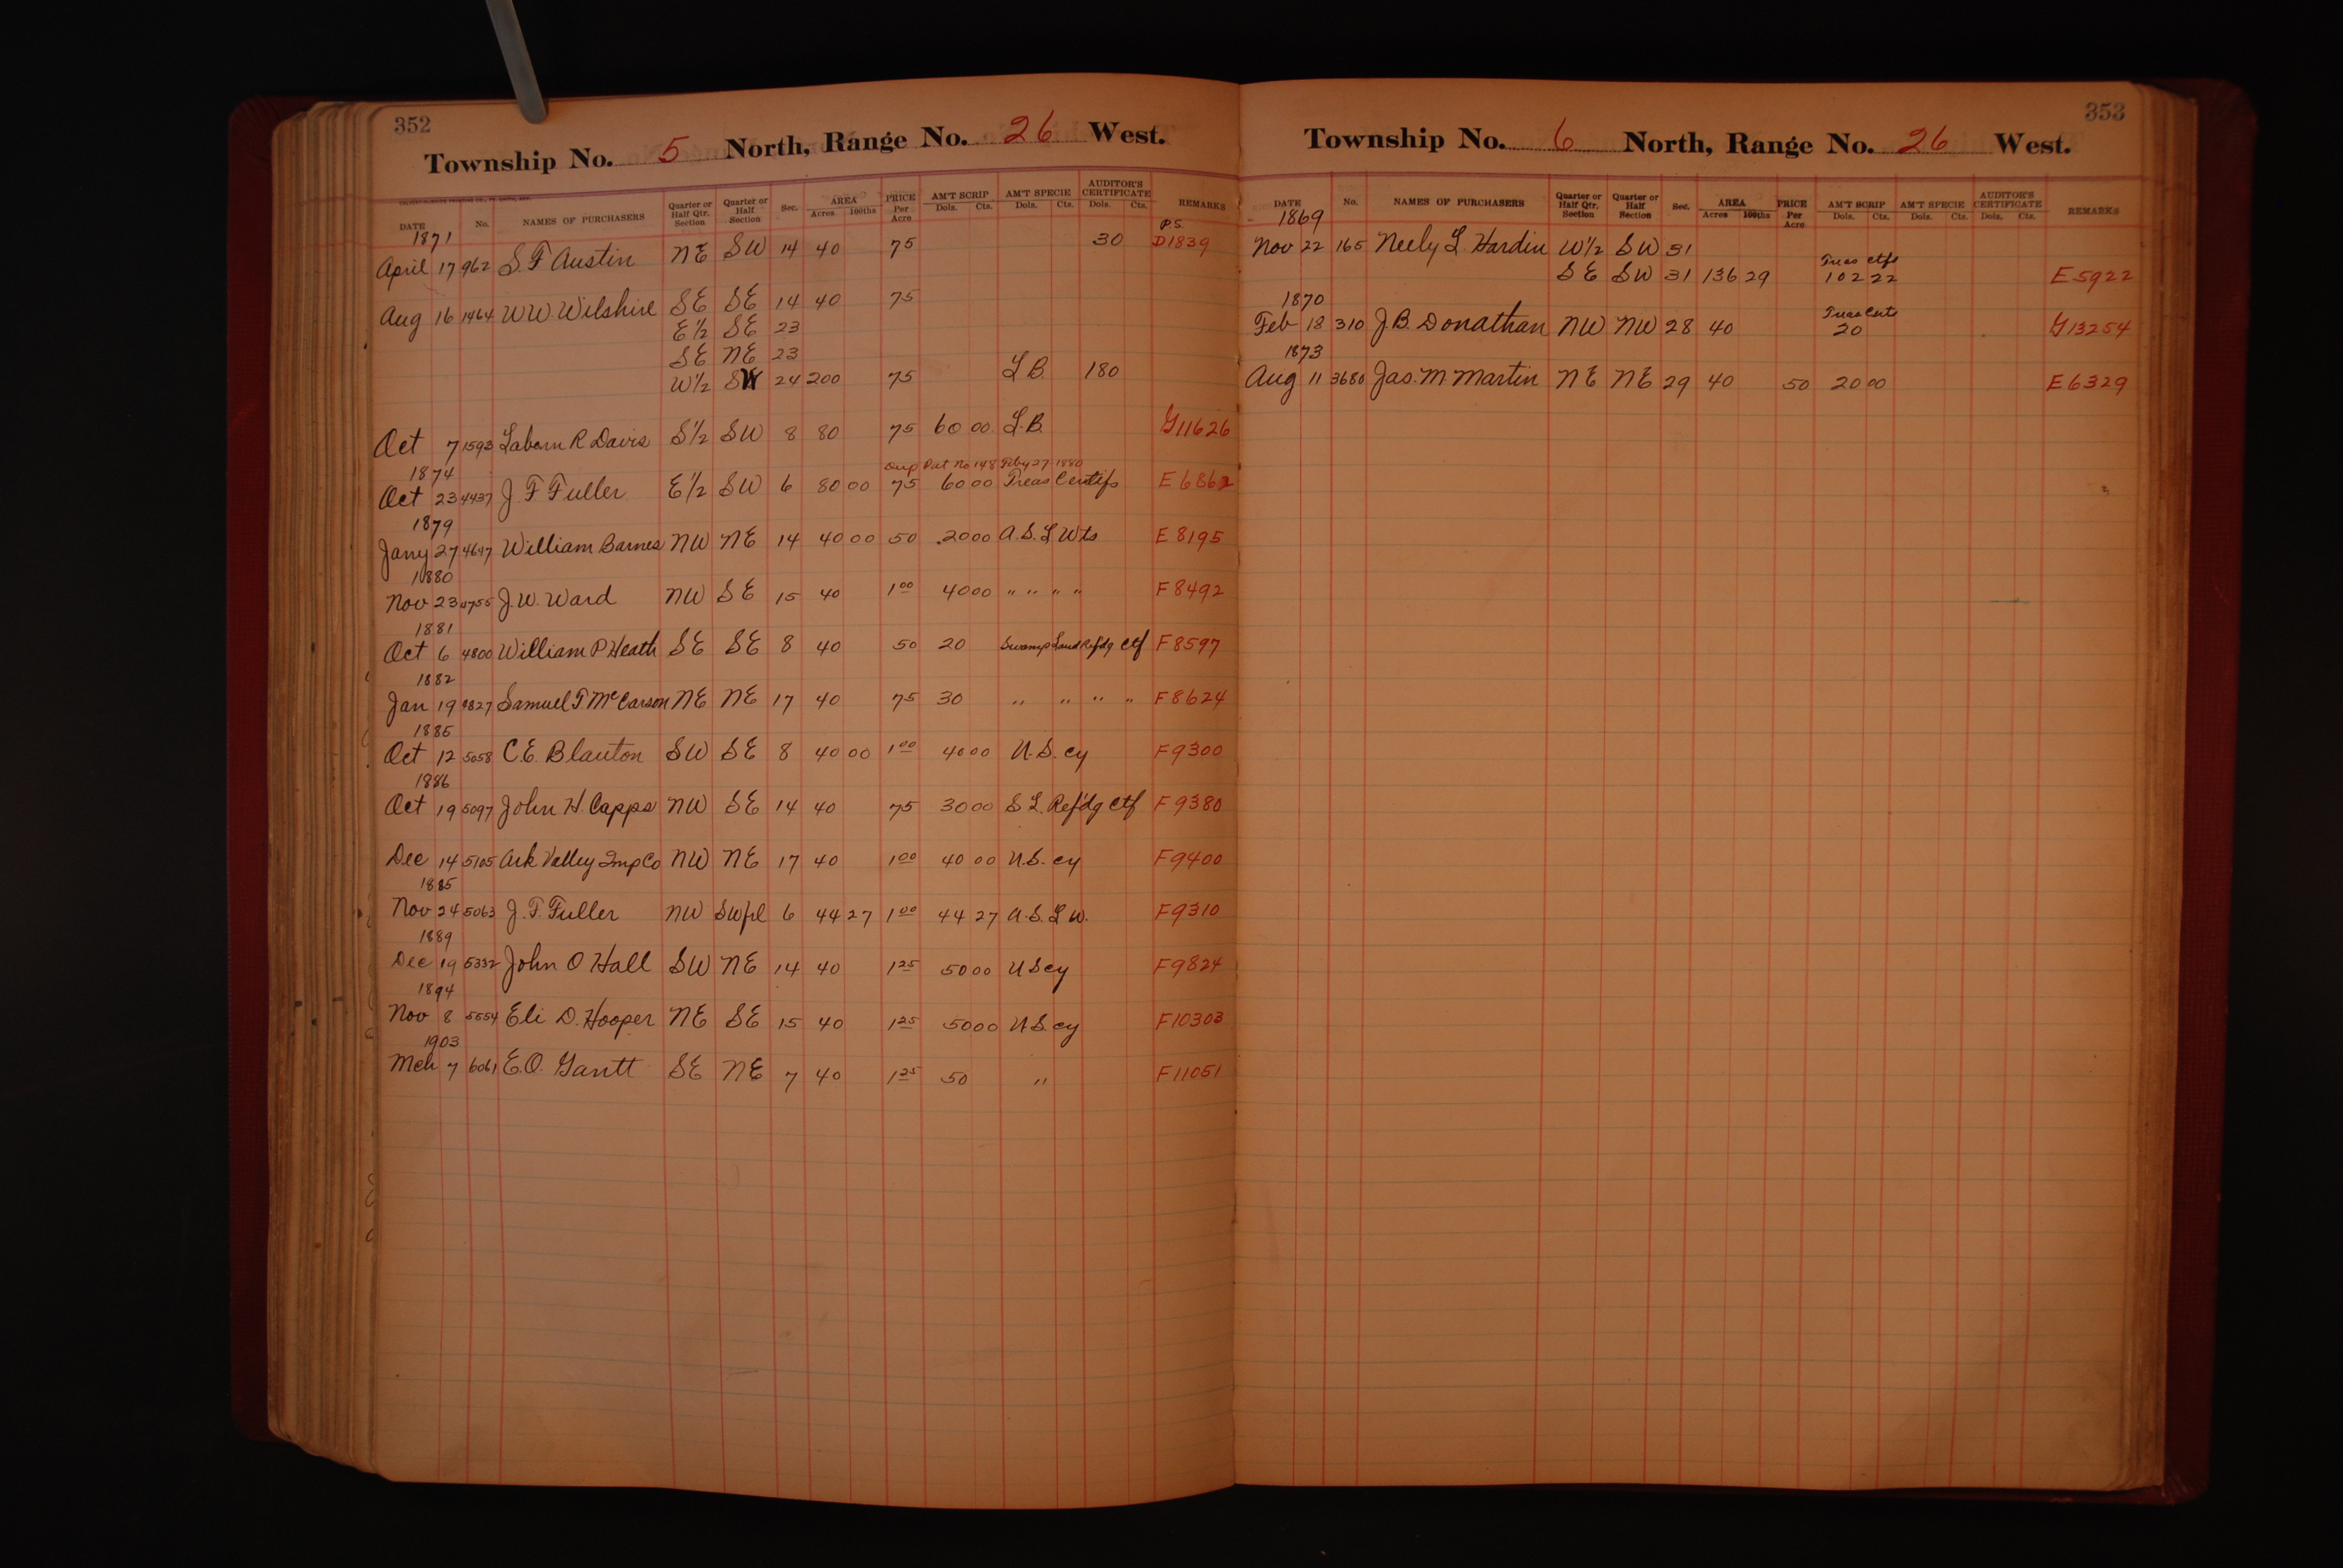 352
Township No. 5 North, Range No. 26 West.
DATE No. NAMES OF PURCHASERS Quarter or Half Qtr. Section Quarter or Half Section Sec. AREA Acres 100ths PRICE Per Acre AM'T SCRIP Dols. Cts. AM'T SPECIE Dols. Cts. AUDITOR'S CERTIFICATE Dols. Cts. REMARKS
1871 P.S.
April 17 962 S. F Austin NE SW 14 40 75 30 D1839
Aug 16 1464 W.W. Wilshire SE SE 14 40 75
E½ SE 23
SE NE 23
W½ SW 24 200 75 L B. 180
Oct 7 1593 Laborn R Davis S½ SW 8 80 75 60 00 L.B. G11626
1874 Dup Pat No 148 Feby 27-1880
Oct 23 4437 J. F Fuller E½ SW 6 80 00 75 60 00 Treas Certifs E 6862
1879
Jany 27 4647 William Barnes NW NE 14 40 00 50 20 00 A. S. L Wts E 8195
1880
Nov 23 4755 J. W. Ward NW SE 15 40 1 00 40 00 " " " " F 8492
1881
Oct 6 4800 William P Heath SE SE 8 40 50 20 Swamp Land Refdg Ctf F 8597
1882
Jan 19 4827 Samuel T McCarson NE NE 17 40 75 30 " " " " F 8624
1885
Oct 12 5058 C. E. Blanton SW SE 8 40 00 1 00 40 00 U. S. cy F9300
1886
Oct 19 5097 John H. Capps NW SE 14 40 75 30 00 S L. Ref'dg Ctf F 9380
Dec 14 5105 Ark Valley Imp Co NW NE 17 40 1 00 40 00 U.S. cy F9400
1885
Nov 24 5063 J. F. Fuller NW SWfrl 6 44 27 1 00 44 27 A. S. L W. F9310
1889
Dec 19 5332 John O Hall SW NE 14 40 1 25 50 00 U S cy F9824
1894
Nov 8 5554 Eli D. Hooper NE SE 15 40 1 25 50 00 U S. cy F10303
1903
Mch 7 6061 E. O. Gantt SE NE 7 40 1 25 50 " F11051
353
Township No. 6 North, Range No. 26 West.
DATE No. NAMES OF PURCHASERS Quarter or Half Qtr. Section Quarter or Half Section Sec. AREA Acres 100ths PRICE Per Acre AM'T SCRIP Dols. Cts. AM'T SPECIE Dols. Cts. AUDITOR'S CERTIFICATE Dols. Cts. REMARKS
1869
Nov 22 165 Neely L. Hardin W½ SW 31
Treas Ctfs
SE SW 31 136 29 102 22 E 5922
1870 Treas Certs
Feb 18 310 J. B. Donathan NW NW 28 40 20 G13254
1873
Aug 11 3680 Jas. M. Martin NE NE 29 40 50 20 00 E 6329